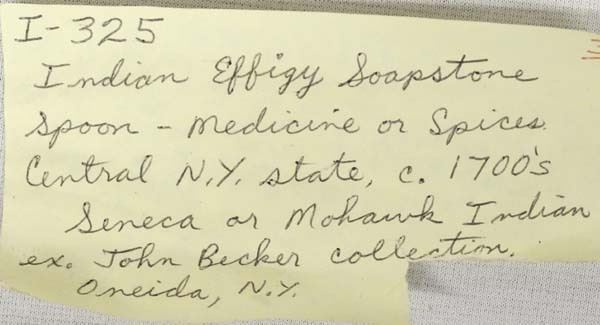 I-325
Indian Effigy Soapstone
Spoon - medicine or Spices
Central N.Y. state, c. 1700's
Seneca or Mohawk Indian
ex. John Becker collection.
Oneida, N.Y.